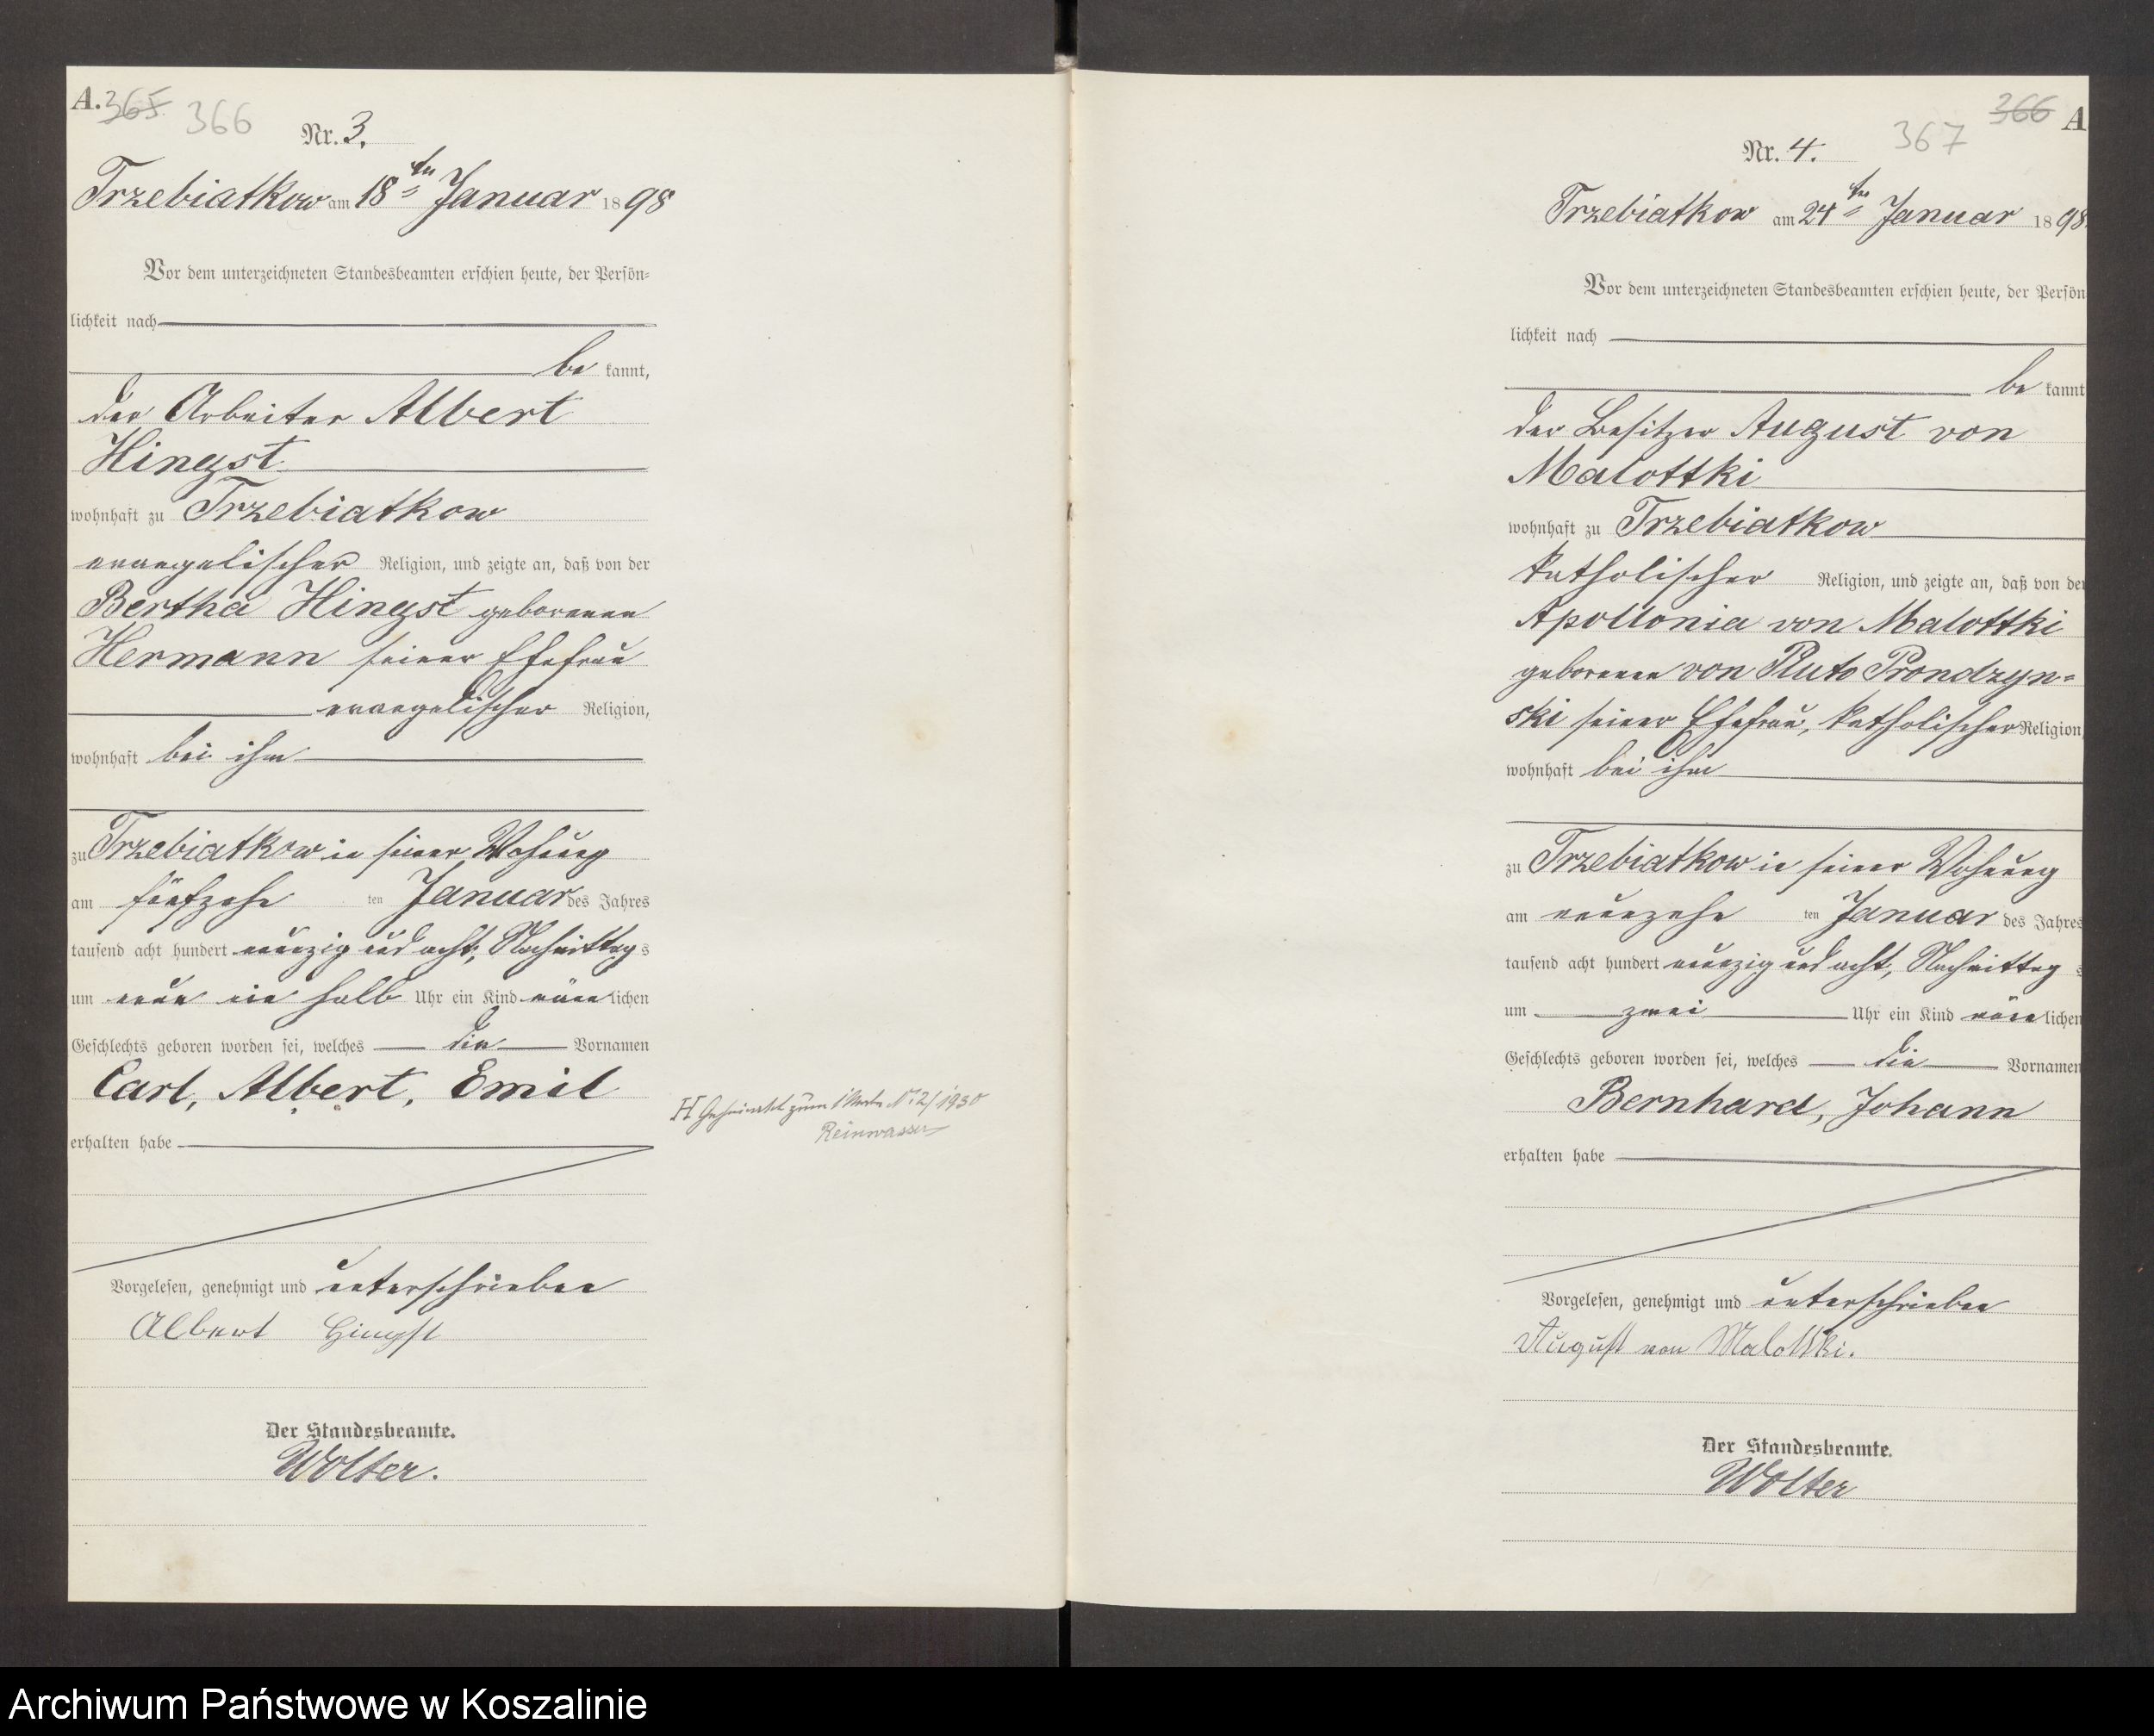 A. 365 366
Nr. 3.
Trzebiatkow am 18ten Januar 1898
Vor dem unterzeichneten Standesbeamten erschien heute, der Persön-
lichkeit nach
be kannt,
der Arbeiter Albert
Hingst
wohnhaft zu Trzebiatkow
evangelischer Religion, und zeigte an, daß von der
Bertha Hingst geborenen
Hermann seiner Ehefrau
evangelischer Religion,
wohnhaft bei ihm
zu Trzebiatkow in seiner Wohnung
am fünfzehn ten Januar des Jahres
tausend acht hundert neunzig und acht, Nachmittag s
um neun ein halb Uhr ein Kind männ lichen
Geschlechts geboren worden sei, welches die Vornamen
Carl, Albert, Emil
erhalten habe
Vorgelesen, genehmigt und unterschrieben
Albert Hingst
Der Standesbeamte.
Wolter.
H Geheiratet zum No 2/1930
Reinwasser
366 A
367
Nr. 4.
Trzebiatkow am 24ten Januar 1898.
Vor dem unterzeichneten Standesbeamten erschien heute, der Persön
lichkeit nach
be kannt
der Besitzer August von
Malottki
wohnhaft zu Trzebiatkow
katholischer Religion, und zeigte an, daß von der
Apollonia von Malottki
geborenen von Pluto Prondzyn-
ski seiner Ehefrau, katholischer Religion,
wohnhaft bei ihm
zu Trzebiatkow in seiner Wohnung
am neunzehn ten Januar des Jahres
tausend acht hundert neunzig und acht, Nachmittag s
um zwei Uhr ein Kind männ lichen
Geschlechts geboren worden sei, welches die Vornamen
Bernhard, Johann
erhalten habe
Vorgelesen, genehmigt und unterschrieben
August von Malottki.
Der Standesbeamte.
Wolter
Archiwum Państwowe w Koszalinie